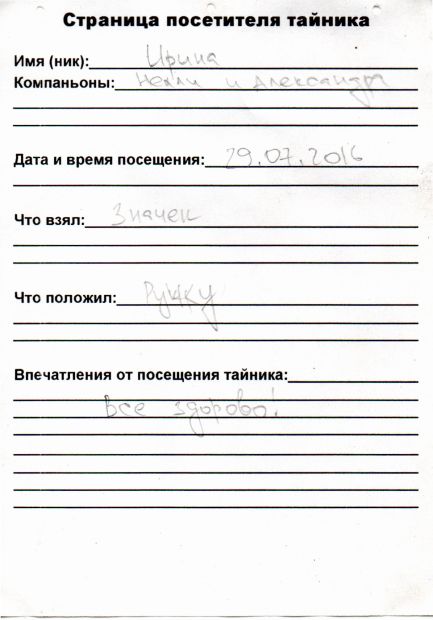 Страница посетителя тайника
Имя (ник): Ирина
Компаньоны: Нелли и Александр
Дата и время посещения: 29.07.2016
Что взял: Значек
Что положил: Ручку
Впечатления от посещения тайника:
Все здорово!